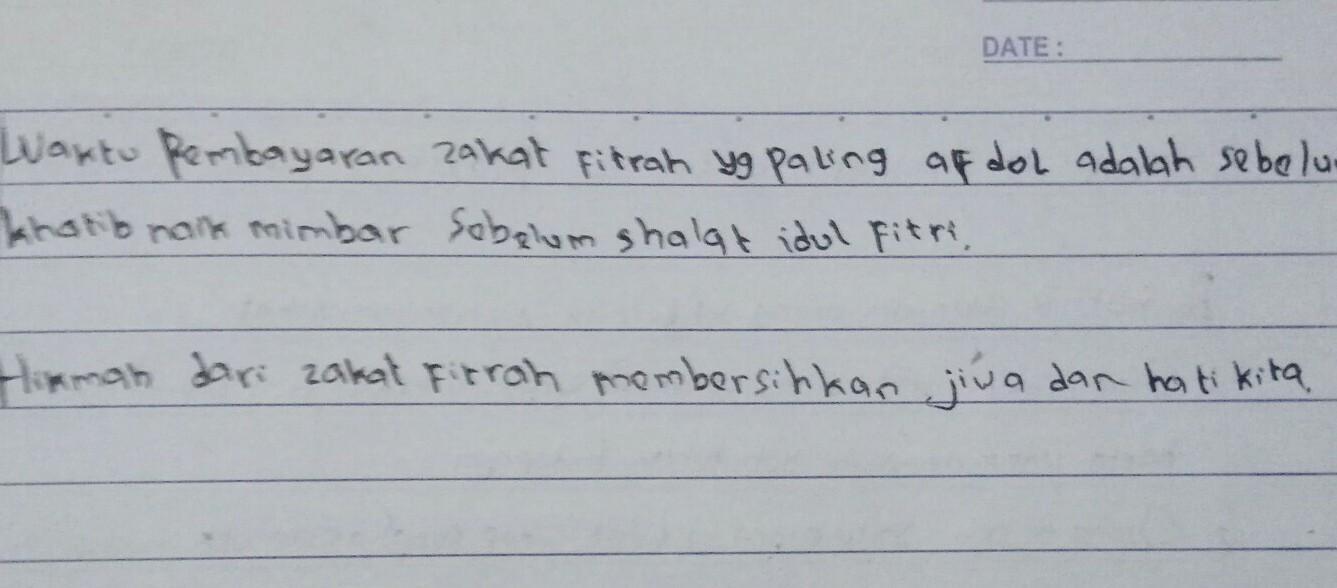 DATE :
Waktu Pembayaran zakat Fitrah yg paling afdol adalah sebelu
khatib naik mimbar Sebelum shalat idul Fitri.
Hikmah dari zakat Fitrah membersihkan jiwa dan hati kita.